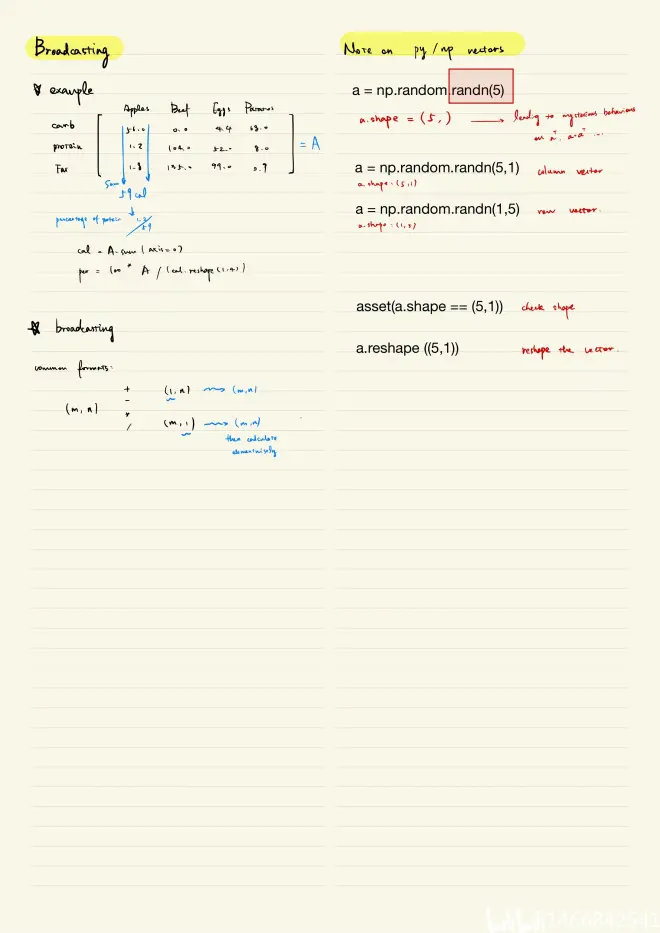 Broadcasting
example
Apples Beef Eggs Potatos
carb 56.0 0.0 4.4 68.0
protein 1.2 104.0 52.0 8.0
Fat 1.8 135.0 99.0 0.9
= A
Sum
59 cal
percentage of protein 1.2/59
cal = A.sum (axis=0)
per = 100 * A / (cal.reshape(1,4))
broadcasting
common formats:
(m, n) + - * / (1, n) (m,n)
(m, 1) (m,n)
then calculate
elementwisely
Note on py/np vectors
a = np.random.randn(5)
a.shape = (5,) leading to mysterious behaviours
on aᵀ, a·aᵀ ...
a = np.random.randn(5,1) column vector
a.shape = (5,1)
a = np.random.randn(1,5) row vector.
a.shape = (1,5)
asset(a.shape == (5,1)) check shape
a.reshape ((5,1)) reshape the vector.